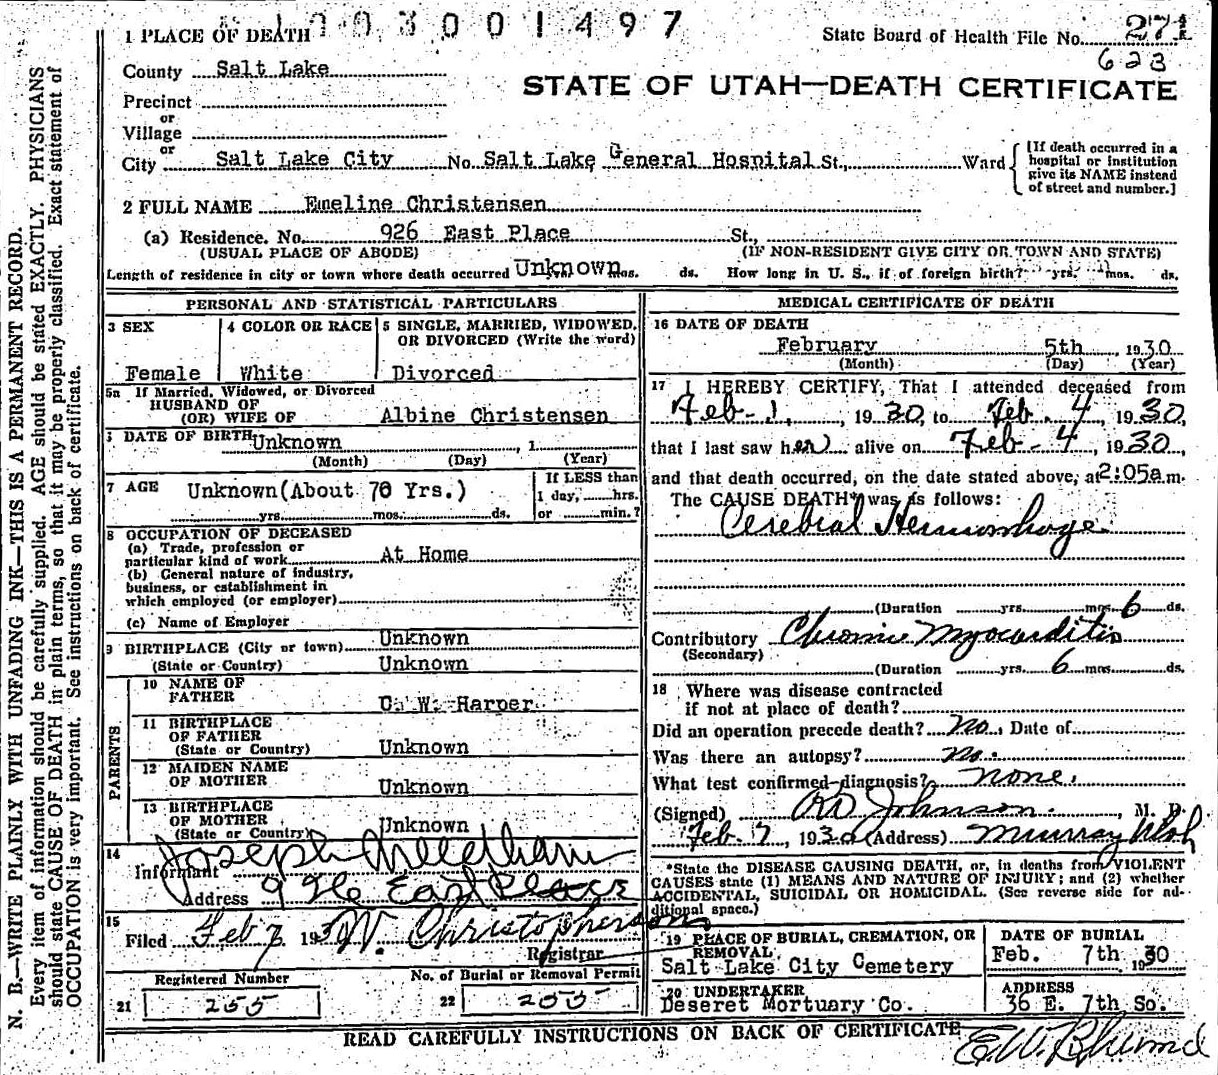 003001497
1 PLACE OF DEATH
State Board of Health File No. 271
623
County Salt Lake
STATE OF UTAH—DEATH CERTIFICATE
Precinct
or
Village
or
City Salt Lake City No. Salt Lake General Hospital St., Ward
[If death occurred in a hospital or institution give its NAME instead of street and number.]
2 FULL NAME Emeline Christensen
(a) Residence. No. 926 East Place St.,
(USUAL PLACE OF ABODE) (IF NON-RESIDENT GIVE CITY OR TOWN AND STATE)
Length of residence in city or town where death occurred Unknown mos. ds. How long in U. S., if of foreign birth? yrs. mos. ds.
N. B.—WRITE PLAINLY WITH UNFADING INK—THIS IS A PERMANENT RECORD.
Every item of information should be carefully supplied. AGE should be stated EXACTLY. PHYSICIANS
should state CAUSE OF DEATH in plain terms, so that it may be properly classified. Exact statement of
OCCUPATION is very important. See instructions on back of certificate.
PERSONAL AND STATISTICAL PARTICULARS
3 SEX
Female
4 COLOR OR RACE
White
5 SINGLE, MARRIED, WIDOWED,
OR DIVORCED (Write the word)
Divorced
5a If Married, Widowed, or Divorced
HUSBAND OF
(OR) WIFE OF Albine Christensen
DATE OF BIRTH Unknown , 1
(Month) (Day) (Year)
7 AGE Unknown(About 70 Yrs.)
yrs. mos. ds.
If LESS than
1 day, hrs.
or min.?
8 OCCUPATION OF DECEASED
(a) Trade, profession or
particular kind of work At Home
(b) General nature of industry,
business, or establishment in
which employed (or employer)
(c) Name of Employer
9 BIRTHPLACE (City or town) Unknown
(State or Country) Unknown
PARENTS
10 NAME OF
FATHER C. W. Harper
11 BIRTHPLACE
OF FATHER
(State or Country) Unknown
12 MAIDEN NAME
OF MOTHER Unknown
13 BIRTHPLACE
OF MOTHER
(State or Country) Unknown
14
Informant Joseph Needham
Address 926 East Place
15
Filed Feb 7 1930 W. Christopherson
Registrar
Registered Number
21 255
No. of Burial or Removal Permit
22 255
MEDICAL CERTIFICATE OF DEATH
16 DATE OF DEATH
February 5th , 1930
(Month) (Day) (Year)
17 I HEREBY CERTIFY, That I attended deceased from
Feb-1, , 1930, to Feb. 4 1930,
that I last saw her alive on Feb-4 , 1930,
and that death occurred, on the date stated above, at 2:05a.m.
The CAUSE DEATH* was as follows:
Cerebral Hemorrhage
(Duration yrs. mos. 6 ds.
Contributory Chronic Myocarditis
(Secondary)
(Duration yrs. 6 mos. ds.
18 Where was disease contracted
if not at place of death?
Did an operation precede death? No. Date of
Was there an autopsy? no.
What test confirmed diagnosis? none.
(Signed) Johnson. , M. D.
Feb. 7 , 1930 (Address) Murray Utah
*State the DISEASE CAUSING DEATH, or, in deaths from VIOLENT
CAUSES state (1) MEANS AND NATURE OF INJURY; and (2) whether
ACCIDENTAL, SUICIDAL OR HOMICIDAL. (See reverse side for ad-
ditional space.)
19 PLACE OF BURIAL, CREMATION, OR
REMOVAL
Salt Lake City Cemetery
DATE OF BURIAL
Feb. 7th 1930
20 UNDERTAKER
Deseret Mortuary Co.
ADDRESS
36 E. 7th So.
READ CAREFULLY INSTRUCTIONS ON BACK OF CERTIFICATE
E.W.